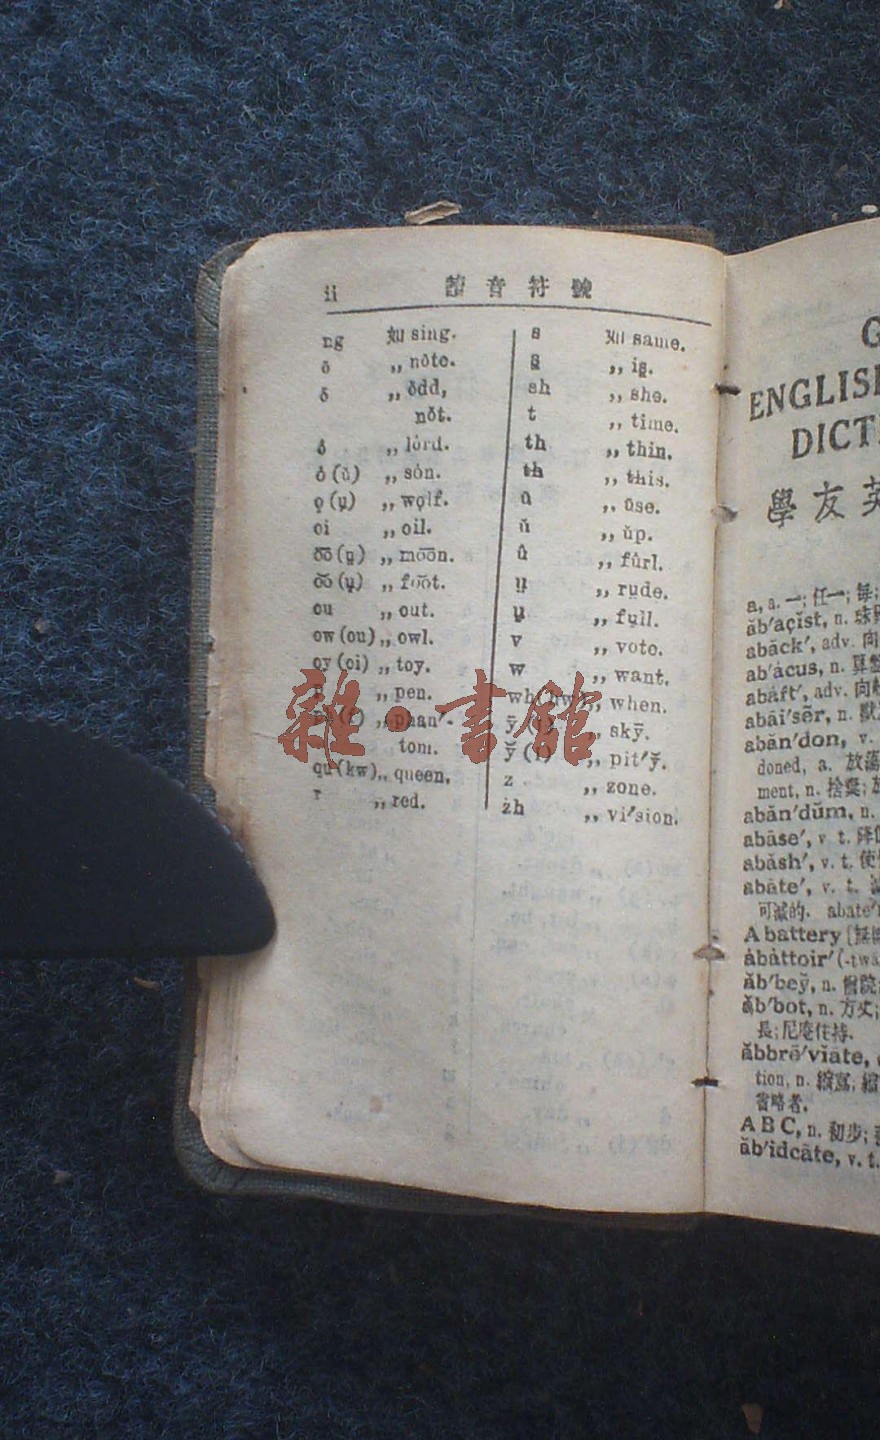 ii 讀音符號
ng 如 sing.
ō ,, nōte.
ŏ ,, ŏdd,
nŏt.
ô ,, lôrd.
ȯ (ŭ) ,, sȯn.
o̤ (ṳ) ,, wo̤lf.
oi ,, oil.
o͞o (ṳ) ,, mo͞on.
o͝o (ṳ) ,, fo͝ot.
ou ,, out.
ow (ou) ,, owl.
oy (oi) ,, toy.
p ,, pen.
ph (f) ,, phan′-
tom.
qu (kw) ,, queen.
r ,, red.
s 如 same.
s̱ ,, is̱.
sh ,, she.
t ,, time.
th ,, thin.
th ,, this.
ū ,, ūse.
ŭ ,, ŭp.
û ,, fûrl.
ṳ ,, rṳde.
ṳ ,, fṳll.
v ,, vote.
w ,, want.
wh (hw) ,, when.
ȳ ,, skȳ.
y̆ ,, pit′y̆.
z ,, zone.
zh ,, vi′sion.
ENGLISH
DICT
學友英
a, a. 一; 任一; 每;
ăb′açĭst, n. 珠
abăck′, adv. 向
ab′acus, n. 算盤
abȧft′, adv. 向
abāi′sẽr, n. 獸
abăn′don, v.
doned, a. 放蕩
ment, n. 捨棄;
abăn′dŭm, n.
abāse′, v. t. 降
abăsh′, v. t. 使
abāte′, v. t.
可減的. abate′
A battery
ȧbȧttoir′ (-twä
ăb′bey̆, n. 僧院
ăb′bot, n. 方丈;
長; 尼庵住持.
ăbbrē′vĭāte,
tion, n. 縮寫;
省略者.
A B C, n. 初步;
ăb′idcāte, v. t.
雜·書館